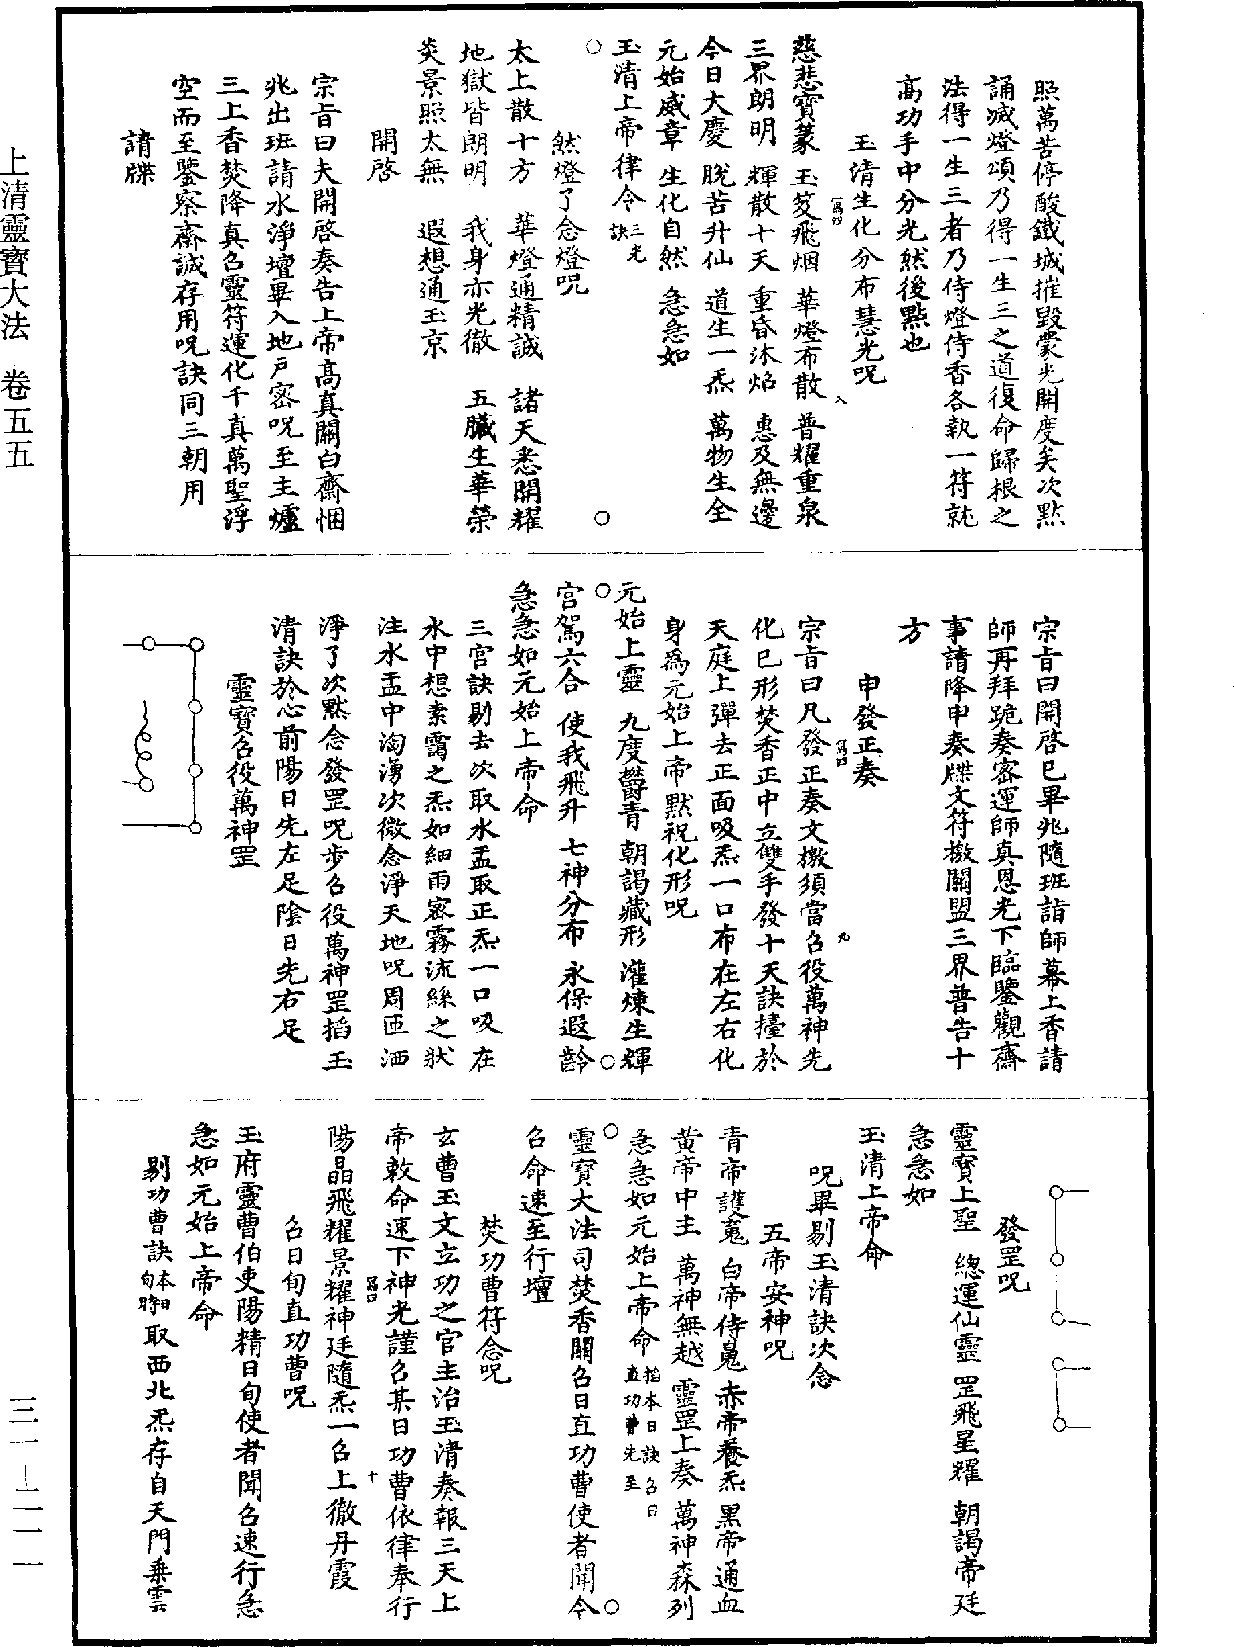 上清靈寶大法　卷五五
三一—二一一
照萬苦停酸鐵城摧毀蒙光開度矣次點
誦滅燈頌乃得一生三之道復命歸根之
法得一生三者乃侍燈侍香各執一符就
高功手中分光然後點也
玉清生化分布慧光呪
慈悲寶篆　玉芨飛烟　華燈布散　普耀重泉
三界朗明　輝散十天　重昏沐焰　惠及無邊
今日大慶　脫苦升仙　道生一炁　萬物生全
元始威章　生化自然　急急如
玉清上帝律令三光訣
然燈了念燈呪
太上散十方　華燈通精誠　諸天悉開耀
地獄皆朗明　我身亦光徹　五臟生華榮
炎景照太無　遐想通玉京
開啓
宗旨曰夫開啓奏告上帝高真關白齋悃
兆出班請水淨壇畢入地戶密呪至主爐
三上香焚降真召靈符運化千真萬聖浮
空而至鑒察齋誠存用呪訣同三朝用
請牒
宗旨曰開啓已畢兆隨班詣師幕上香請
師再拜跪奏密運師真恩光下臨鑒觀齋
事請降申奏牒文符檄關盟三界普告十
方
申發正奏
宗旨曰凡發正奏文檄須當召役萬神先
化已形焚香正中立雙手發十天訣擡於
天庭上彈去正面吸炁一口布在左右化
身為元始上帝默祝化形呪
元始上靈　九度鬱青　朝謁藏形　灌煉生輝
宮駕六合　使我飛升　七神分布　永保遐齡
急急如元始上帝命
三宮訣剔去次取水盂取正炁一口吸在
水中想素靄之炁如細雨密霧流絲之狀
注水盂中洶湧次微念淨天地呪周匝洒
淨了次默念發罡呪步召役萬神罡掐玉
清訣於心前陽日先左足陰日先右足
靈寶召役萬神罡
發罡呪
靈寶上聖　總運仙靈　罡飛星耀　朝謁帝廷
急急如
玉清上帝命
呪畢剔玉清訣次念
五帝安神呪
青帝護䰟　白帝侍魄　赤帝養炁　黑帝通血
黃帝中主　萬神無越　靈罡上奏　萬神森列
急急如元始上帝命掐本日訣召日直功曹先至
靈寶大法司焚香關召日直功曹使者聞令
召命速至行壇
焚功曹符念呪
玄曹玉文立功之官主治玉清奏報三天上
帝敕命速下神光謹召某日功曹依律奉行
陽晶飛耀景耀神廷隨炁一召上徹丹霞
召日旬直功曹呪
玉府靈曹伯吏陽精日旬使者聞召速行急
急如元始上帝命
剔功曹訣本日旬時取西北炁存自天門乘雲